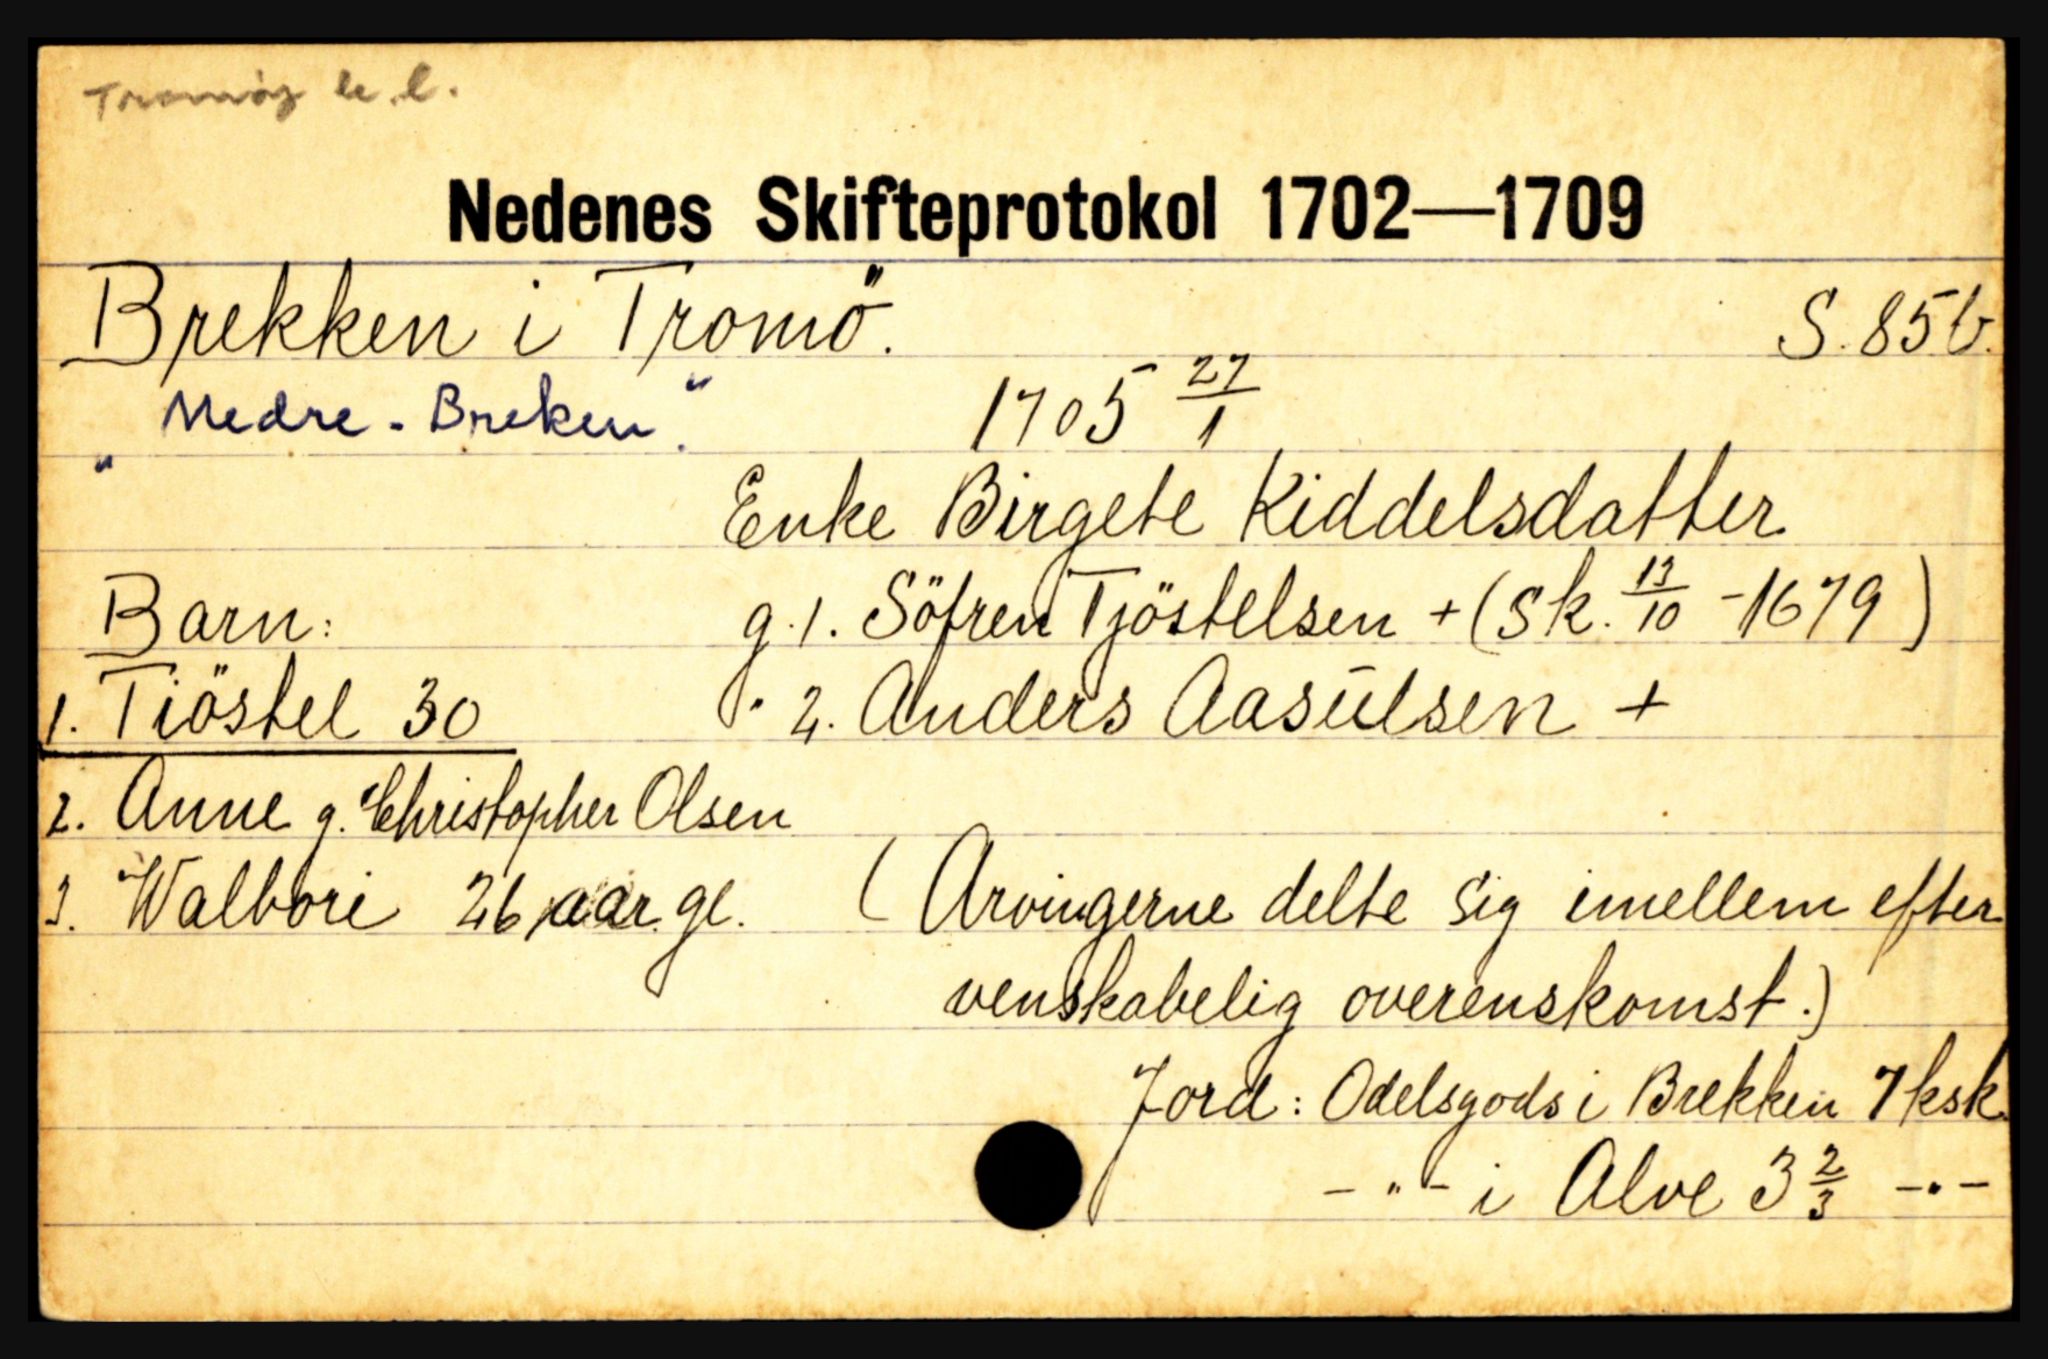 Tromøy h.l.
Nedenes Skifteprotokol 1702—1709
Brekken i Tromö. S. 85b.
"Nedre-Breken." 1705 27/1
Enke Birgete Kiddelsdatter
Barn: g. 1. Söfren Tjöstelsen + (Sk. 13/10 - 1679)
1. Tiöstel 30 " 2. Anders Aasulsen +
2. Anne g. Christopher Olsen
3. Walbori 26 aar gl. (Arvingerne delte sig imellem efter
venskabelig overenskomst.)
Jord: Odelsgods i Brekken 7 ksk.
- " - i Alve 3 2/3 - " -